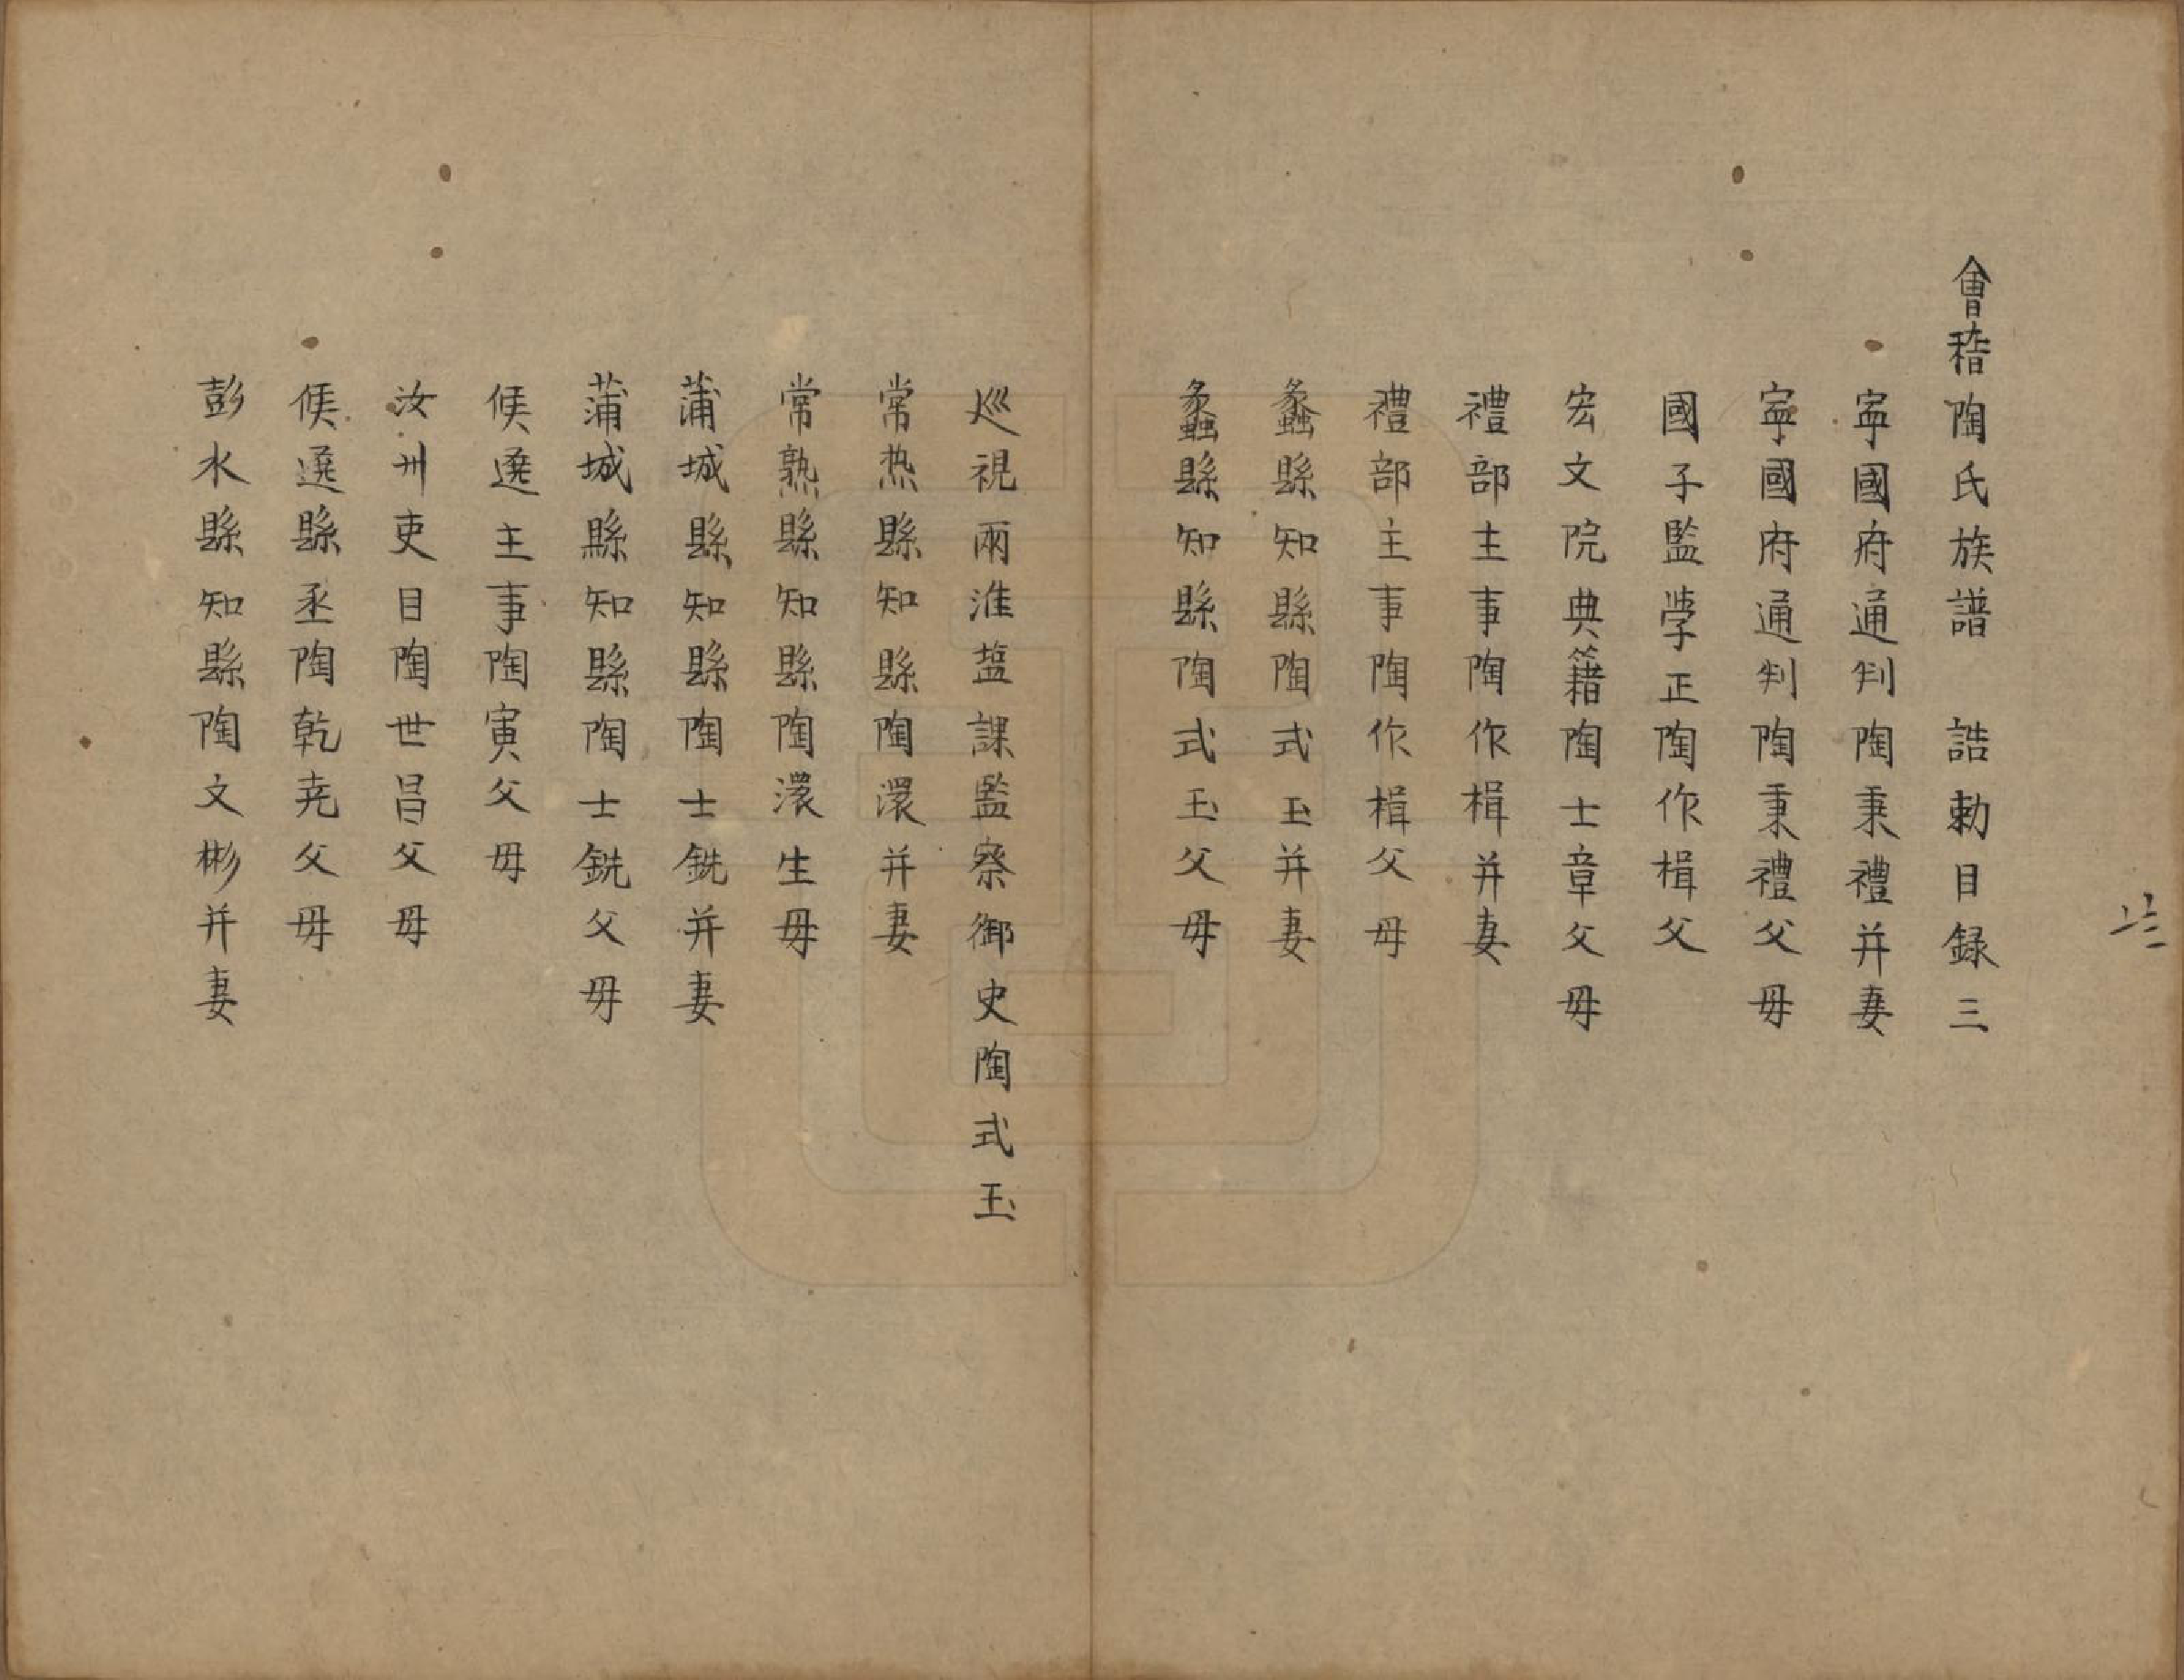 會稽陶氏族譜　誥勅目録三
寧國府通判陶秉禮并妻
寧國府通判陶秉禮父毋
國子監學正陶作楫父
宏文院典籍陶士章父毋
禮部主事陶作楫并妻
禮部主事陶作楫父母
蠡縣知縣陶式玉并妻
蠡縣知縣陶式玉父毋
廵視兩淮塩課監察御史陶式玉
常熱縣知縣陶澴并妻
常熟縣知縣陶澴生毋
蒲城縣知縣陶士銑并妻
蒲城縣知縣陶士銑父毋
候選主事陶寅父毋
汝州吏目陶世昌父毋
候選縣丞陶乾尭父毋
彭水縣知縣陶文彬并妻